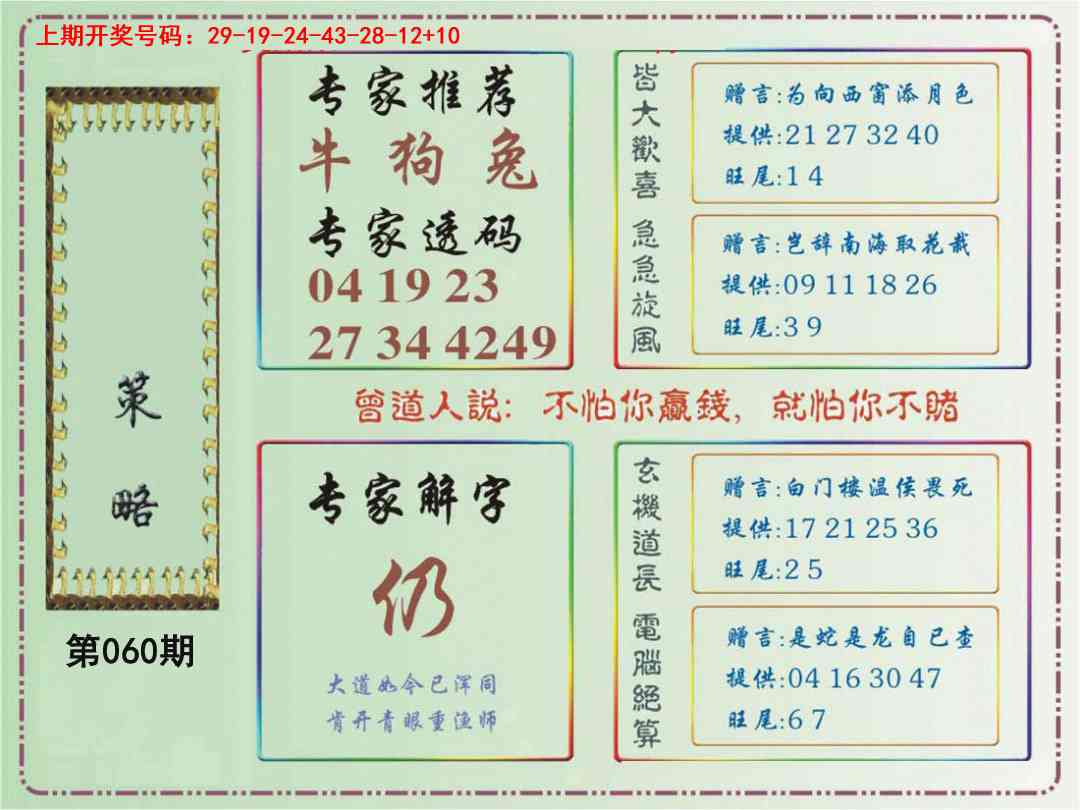 上期开奖号码：29-19-24-43-28-12+10
策略
第060期
专家推荐
牛 狗 兔
专家透码
04 19 23
27 34 4249
皆大歡喜
赠言:为向西窗添月色
提供:21 27 32 40
旺尾:1 4
急急旋風
赠言:岂辞南海取花栽
提供:09 11 18 26
旺尾:3 9
曾道人説：不怕你贏錢，就怕你不賭
专家解字
仍
大道如今已浑同
肯开青眼重渔师
玄機道長
赠言:白门楼温侯畏死
提供:17 21 25 36
旺尾:2 5
電腦絕算
赠言:是蛇是龙自已查
提供:04 16 30 47
旺尾:6 7